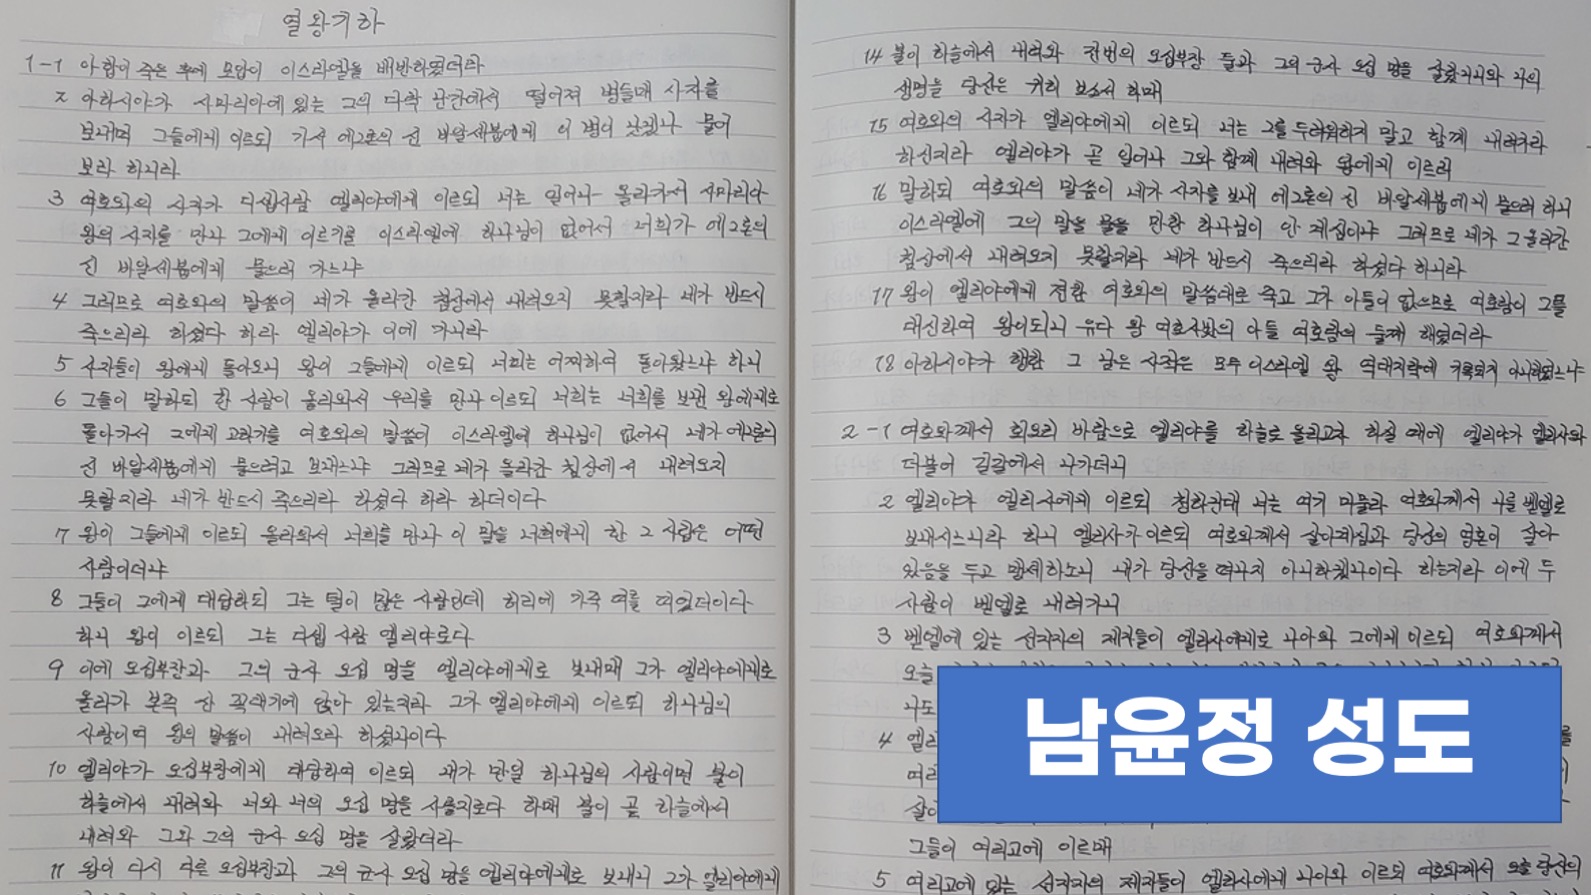 열왕기하
1-1 아합이 죽은 후에 모압이 이스라엘을 배반하였더라
2 아하시야가 사마리아에 있는 그의 다락 난간에서 떨어져 병들매 사자를
보내며 그들에게 이르되 가서 에그론의 신 바알세붑에게 이 병이 낫겠나 물어
보라 하니라
3 여호와의 사자가 디셉사람 엘리야에게 이르되 너는 일어나 올라가서 사마리아
왕의 사자를 만나 그에게 이르기를 이스라엘에 하나님이 없어서 너희가 에그론의
신 바알세붑에게 물으러 가느냐
4 그러므로 여호와의 말씀이 네가 올라간 침상에서 내려오지 못할지라 네가 반드시
죽으리라 하셨다 하라 엘리야가 이에 가니라
5 사자들이 왕에게 돌아오니 왕이 그들에게 이르되 너희는 어찌하여 돌아왔느냐 하니
6 그들이 말하되 한 사람이 올라와서 우리를 만나 이르되 너희는 너희를 보낸 왕에게로
돌아가서 그에게 고하기를 여호와의 말씀이 이스라엘에 하나님이 없어서 네가 에그론의
신 바알세붑에게 물으려고 보내느냐 그러므로 네가 올라간 침상에서 내려오지
못할지라 네가 반드시 죽으리라 하셨다 하라 하더이다
7 왕이 그들에게 이르되 올라와서 너희를 만나 이 말을 너희에게 한 그 사람은 어떤
사람이더냐
8 그들이 그에게 대답하되 그는 털이 많은 사람인데 허리에 가죽 띠를 띠었더이다
하니 왕이 이르되 그는 디셉 사람 엘리야로다
9 이에 오십부장과 그의 군사 오십 명을 엘리야에게로 보내매 그가 엘리야에게로
올라가 본즉 산 꼭대기에 앉아 있는지라 그가 엘리야에게 이르되 하나님의
사람이여 왕의 말씀이 내려오라 하셨나이다
10 엘리야가 오십부장에게 대답하여 이르되 내가 만일 하나님의 사람이면 불이
하늘에서 내려와 너와 너의 오십 명을 사를지로다 하매 불이 곧 하늘에서
내려와 그와 그의 군사 오십 명을 살랐더라
11 왕이 다시 다른 오십부장과 그의 군사 오십 명을 엘리야에게로 보내니 그가 엘리야에게
14 불이 하늘에서 내려와 전번의 오십부장 둘과 그의 군사 오십 명을 살랐거니와 나의
생명을 당신은 귀히 보소서 하매
15 여호와의 사자가 엘리야에게 이르되 너는 그를 두려워하지 말고 함께 내려가라
하신지라 엘리야가 곧 일어나 그와 함께 내려와 왕에게 이르러
16 말하되 여호와의 말씀이 네가 사자를 보내 에그론의 신 바알세붑에게 물으려 하니
이스라엘에 그의 말을 물을 만한 하나님이 안 계심이냐 그러므로 네가 그 올라간
침상에서 내려오지 못할지라 네가 반드시 죽으리라 하셨다 하니라
17 왕이 엘리야에게 전한 여호와의 말씀대로 죽고 그가 아들이 없으므로 여호람이 그를
대신하여 왕이되니 유다 왕 여호사밧의 아들 여호람의 둘째 해였더라
18 아하시야가 행한 그 남은 사적은 모두 이스라엘 왕 역대지략에 기록되지 아니하였느냐
2-1 여호와께서 회오리 바람으로 엘리야를 하늘로 올리고자 하실 때에 엘리야가 엘리사와
더불어 길갈에서 나가더니
2 엘리야가 엘리사에게 이르되 청하건대 너는 여기 머물라 여호와께서 나를 벧엘로
보내시느니라 하니 엘리사가 이르되 여호와께서 살아계심과 당신의 영혼이 살아
있음을 두고 맹세하노니 내가 당신을 떠나지 아니하겠나이다 하는지라 이에 두
사람이 벧엘로 내려가니
3 벧엘에 있는 선지자의 제자들이 엘리사에게로 나아와 그에게 이르되 여호와께서
오늘
나도
남윤정 성도
4
그들이 여리고에 이르매
5 여리고에 있는 선지자의 제자들이 엘리사에게 나아와 이르되 여호와께서 오늘 당신의